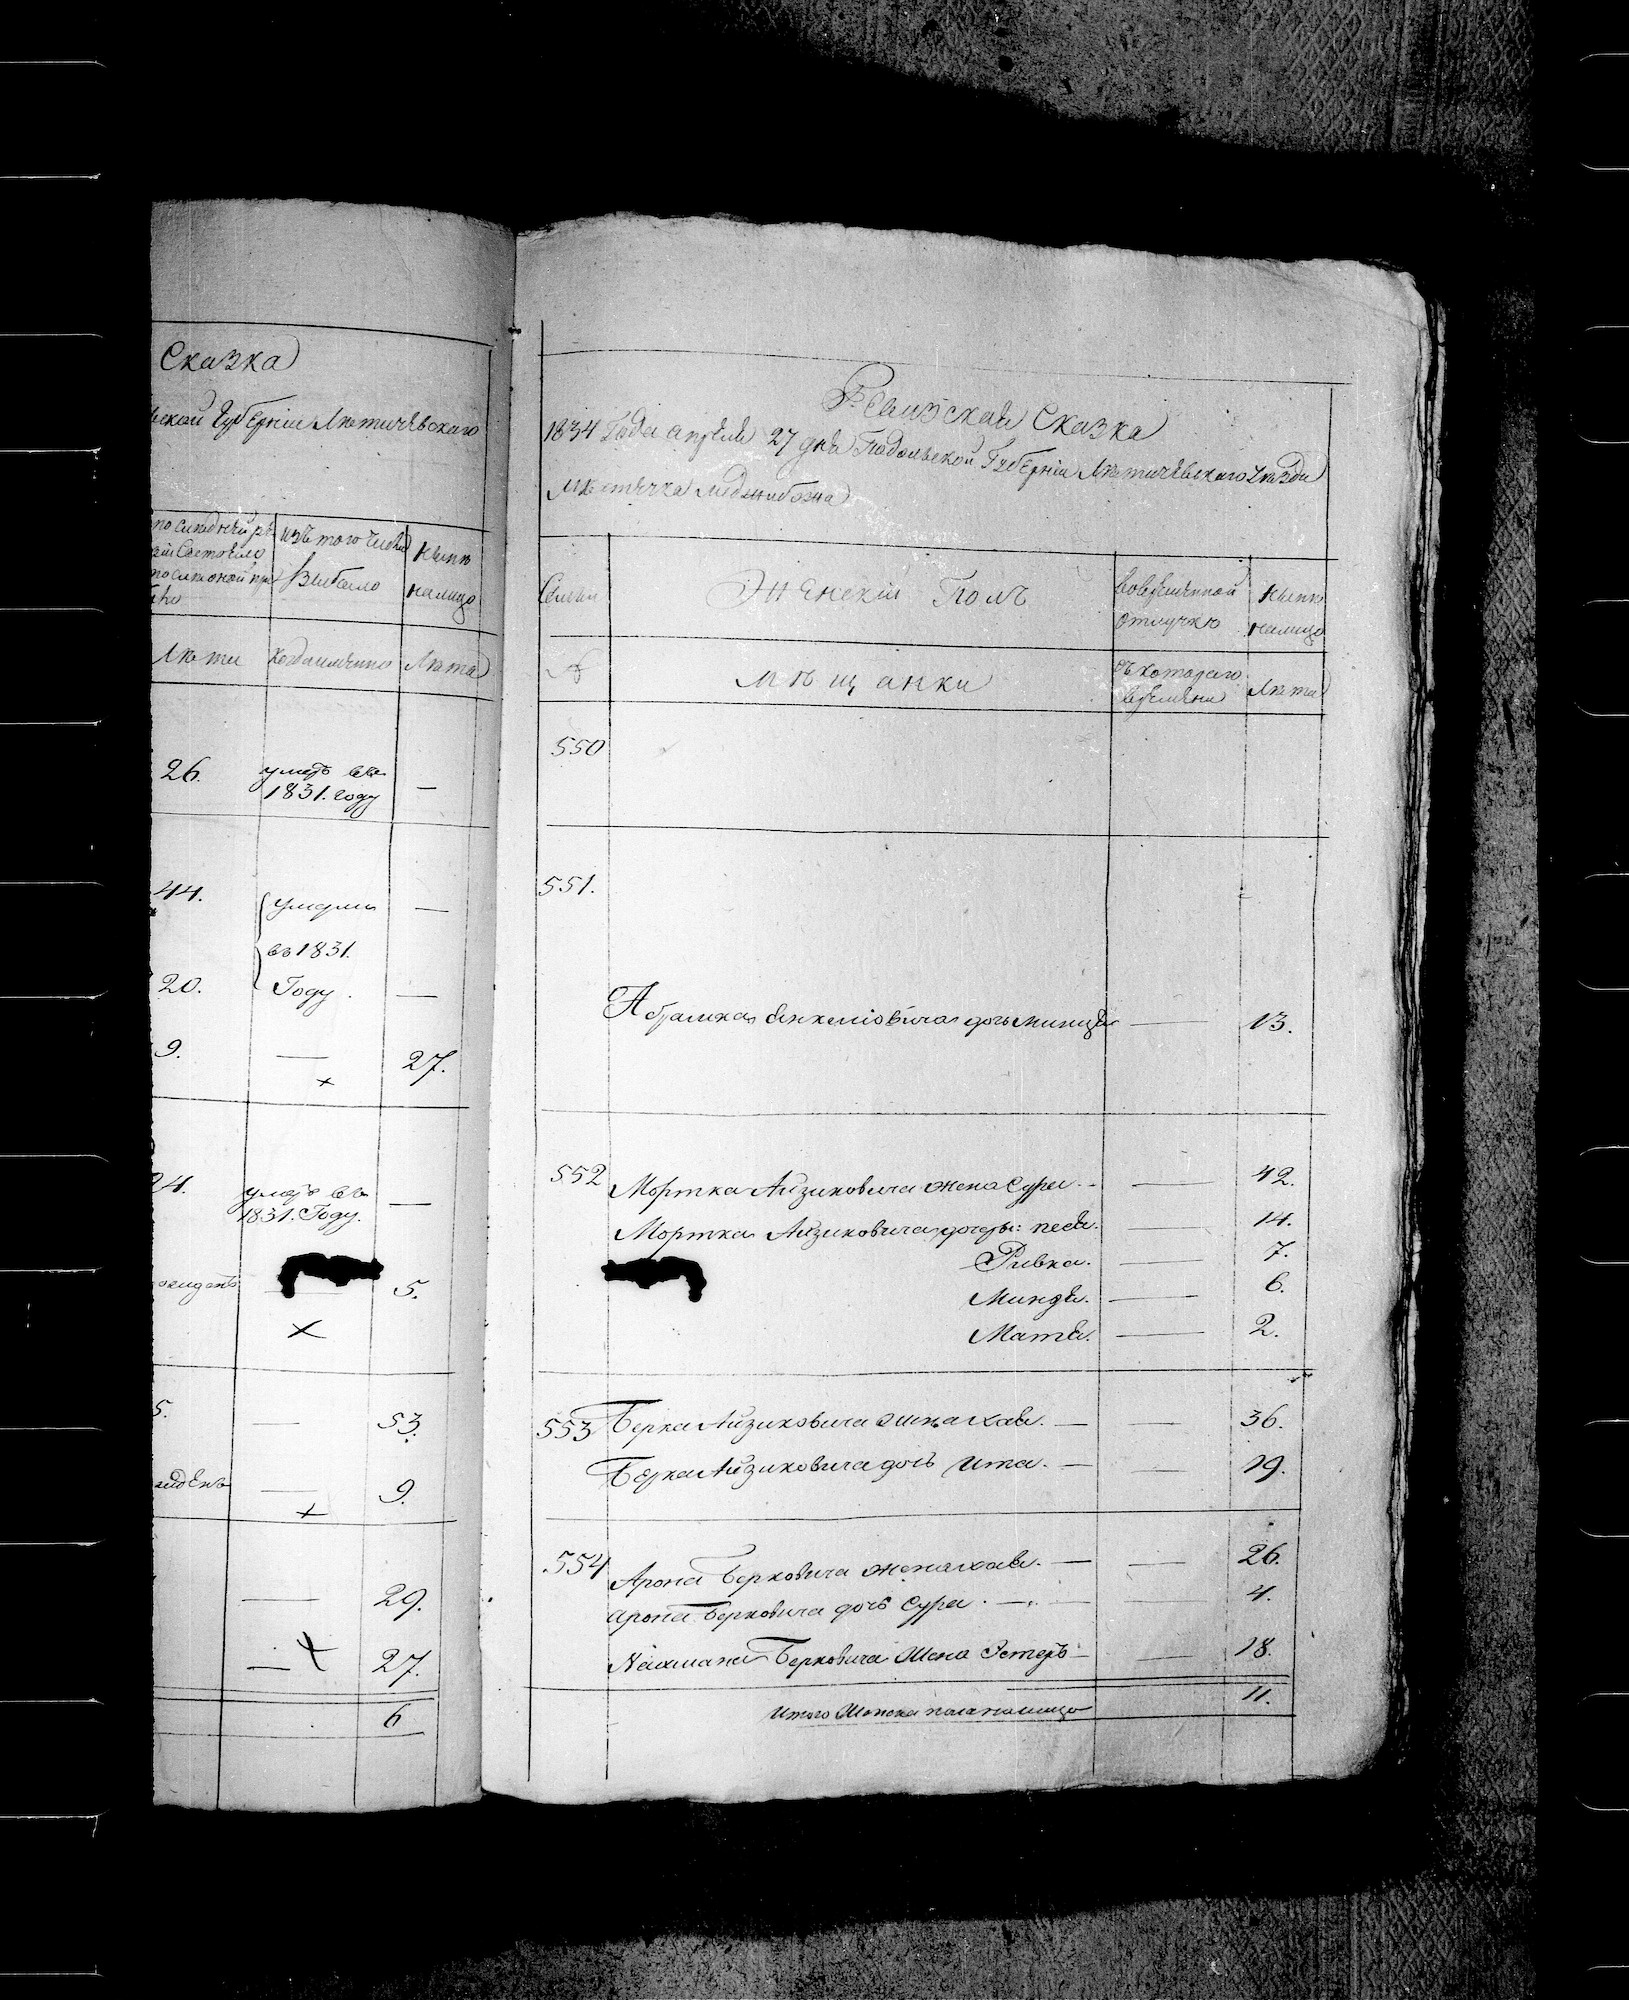 Сказка
ской Губерніи Лѣтичевскаго
по последней ре изъ того числа Нынѣ
Выбыло налицо
Лѣта Когда именно Лѣта
26. умеръ въ —
1831. году
44. умерли —
въ 1831.
20. Году. —
9. — 27.
24. умеръ въ —
1831. Году.
5.
5. — 53.
— 9.
— 29.
— 27.
6
Ревизская Сказка
1834 Года апреля 27 дня Подольской Губерніи Лѣтичевскаго уѣзда
Мѣстечка Меджибожа
Семьи Женскій Полъ Вовременной Нынѣ
отлучкѣ налицо
№ мѣщанки съ котораго Лѣта
времени
550
551.
Абрамка Янкеліовича дочь — 13.
552 Мортка Айзиковича жена Сура. — 42.
Мортка Айзиковича дочери: Песя. — 14.
Ривка. — 7.
Миндя. — 6.
Матя. — 2.
553 Берка Айзиковича жена Хая. — — 36.
Берка Айзиковича дочь Ита. — — 19.
554 Арона Берковича жена Хая. — — 26.
Арона Берковича дочь Сура. — — 4.
Нахмана Берковича Жена Эстеръ — — 18.
Итого Женска пола налицо 11.